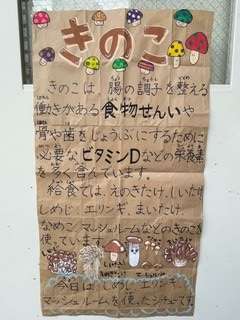 きのこ
きのこは、腸の調子を整える
働きがある食物せんいや
骨や歯をじょうぶにするために
必要なビタミンDなどの栄養素
を多く含んでいます。
給食では、えのきたけ、しいたけ、
しめじ、エリンギ、まいたけ、
なめこ、マッシュルームなどのきのこを
使っています。
今日は、しめじ、エリンギ、
マッシュルームを使ったシチューです。